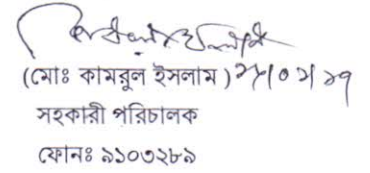 (মোঃ কামরুল ইসলাম)
সহকারী পরিচালক
ফোনঃ ৯১০৩২৮৯